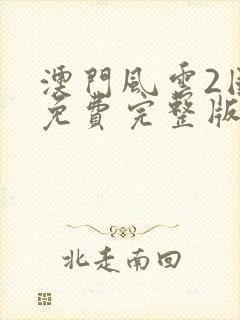 澳門風雲2
免費完整版
北走南回